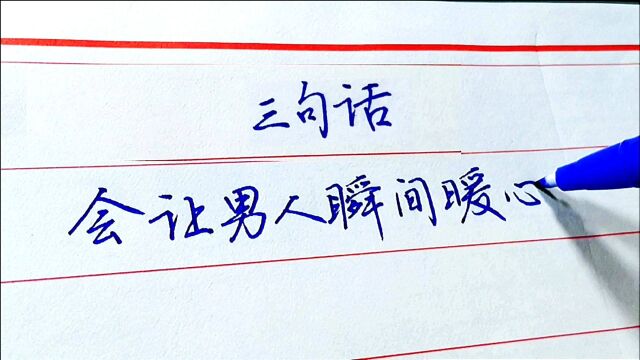 三句话
会让男人瞬间暖心